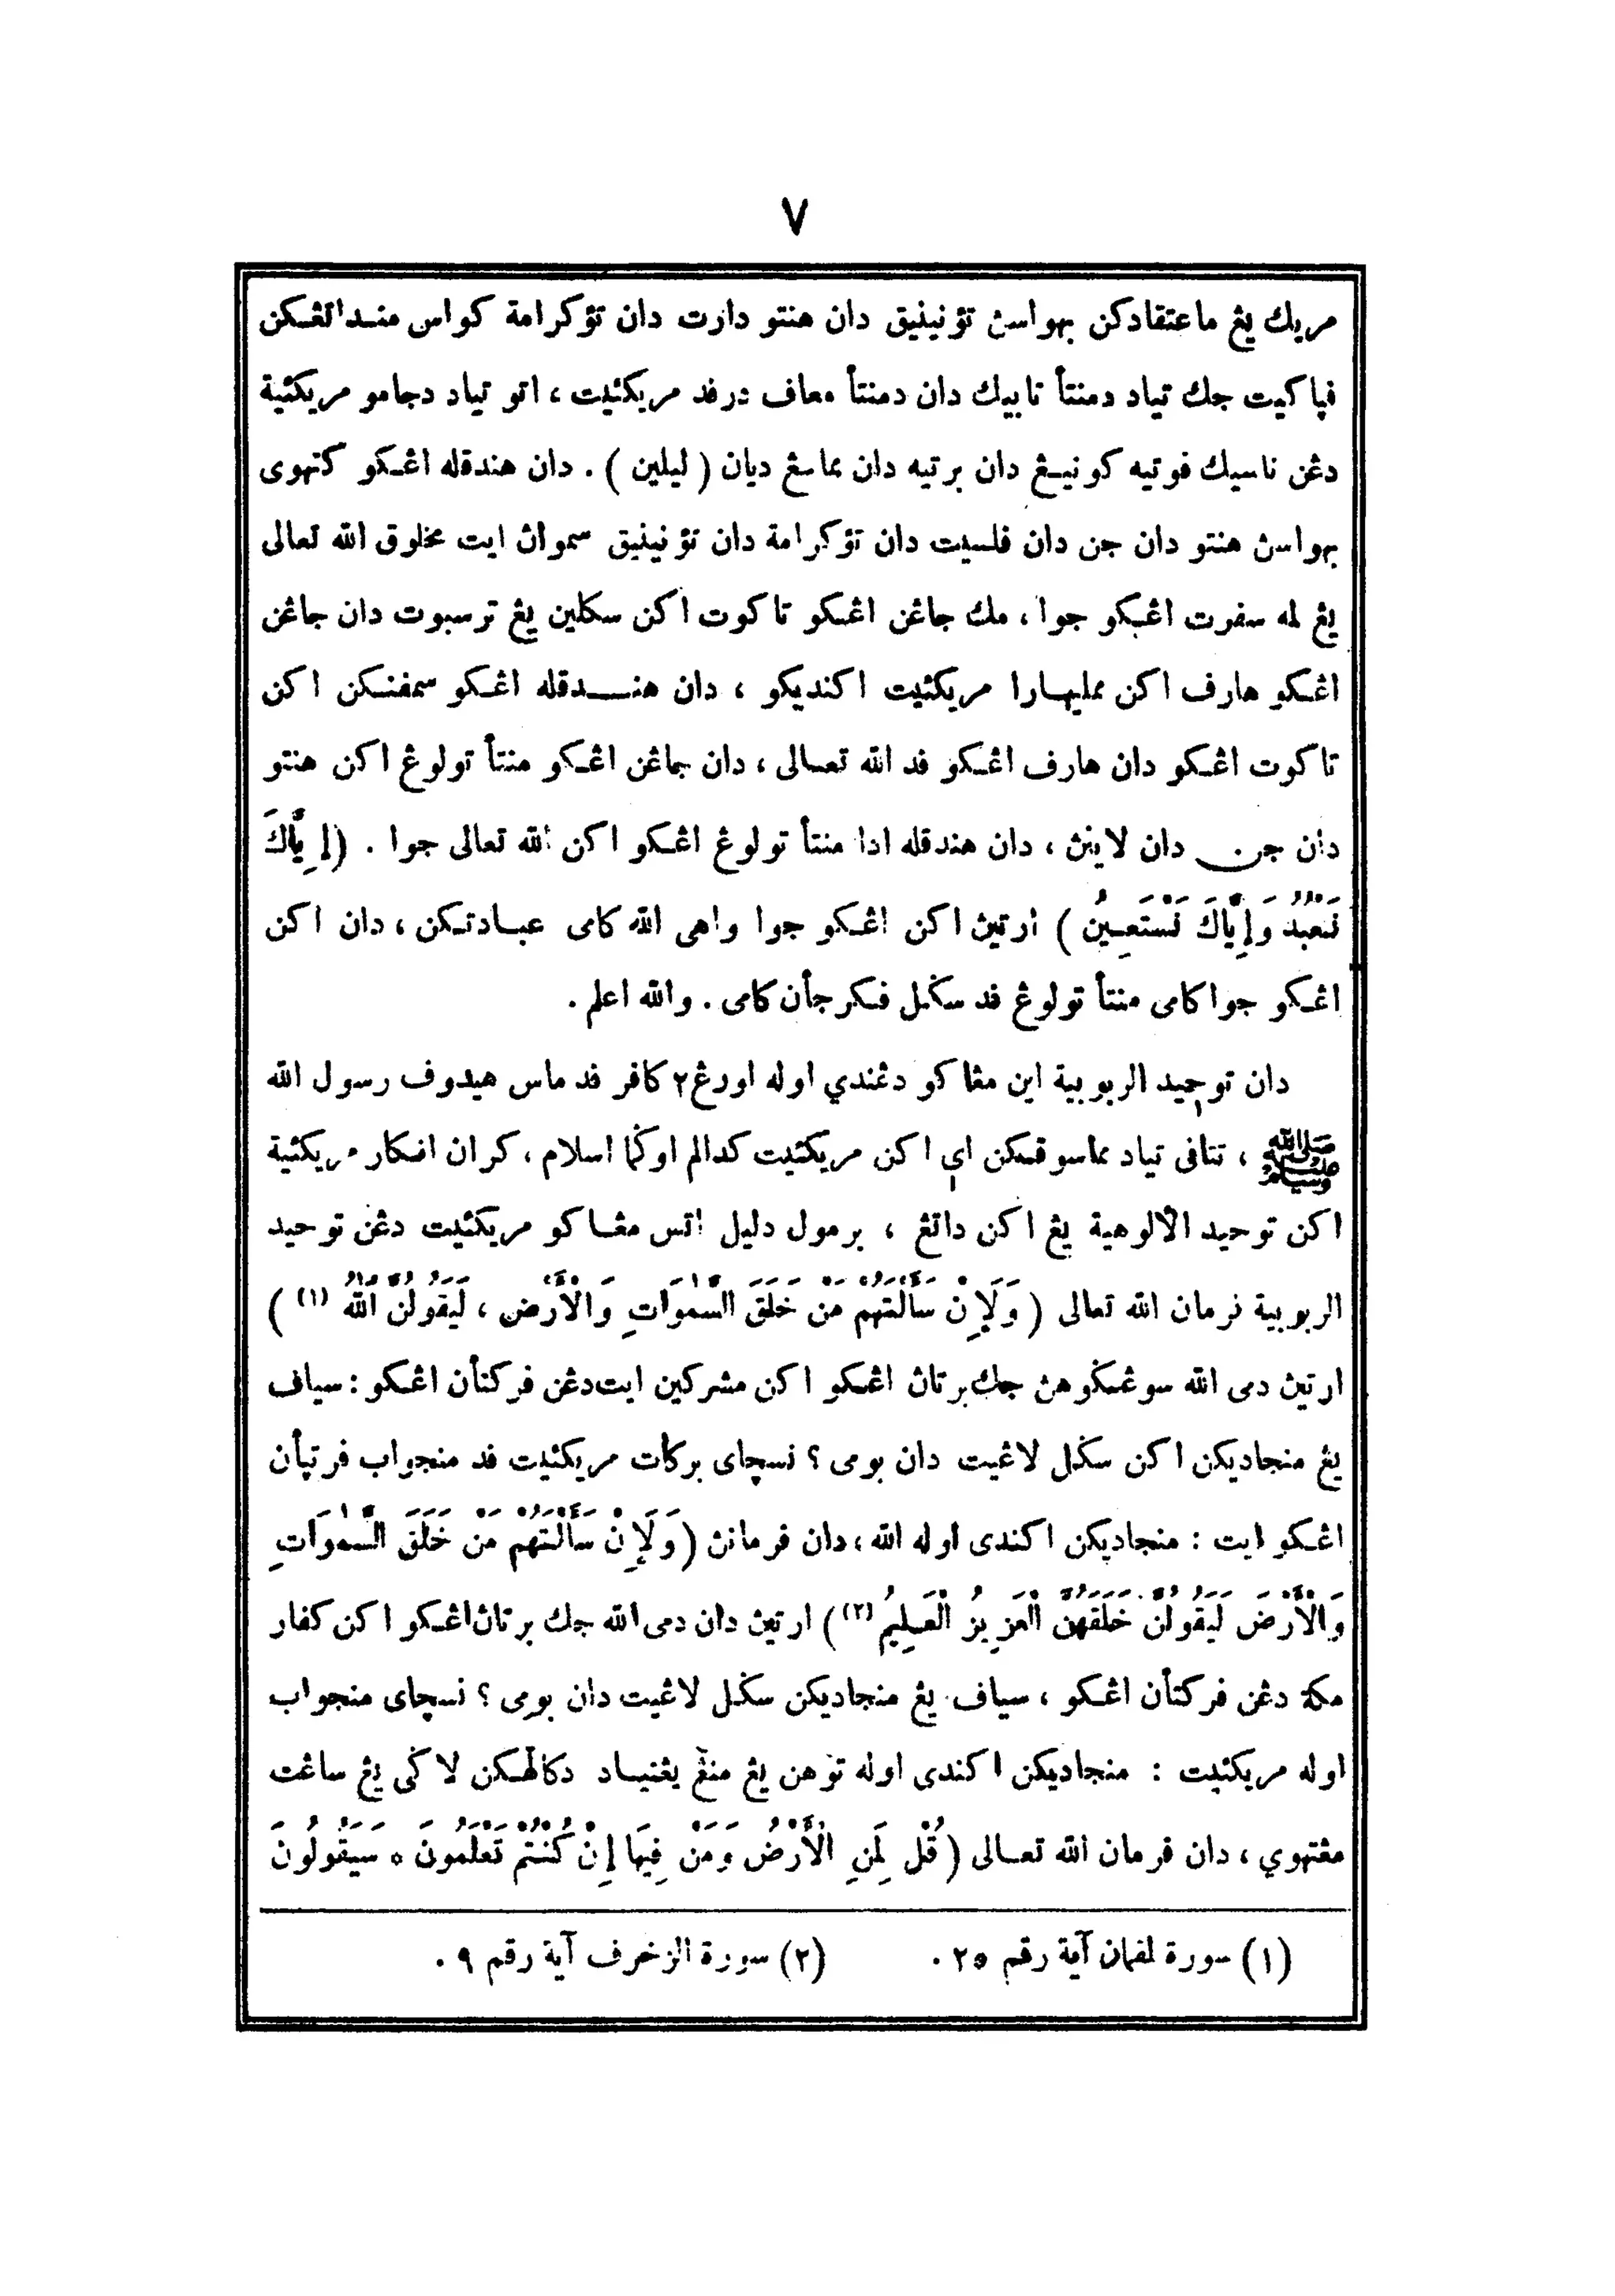 ٧
مريك يڠ ماعتقادكن بهواسڽ تؤنينيق دان هنتو دارت دان تؤكرامة كواس منداتڠكن
ڤپاكيت جك تياد دمنتأ تابيك دان دمنتأ معاف درفد مريكئيت ، اتو تياد دجامو مريكئية
دڠن ناسيك فوتيه كونيڠ دان برتيه دان مماسڠ ديان ( ليلين ) . دان هندقله اڠكو كتهوى
بهواسڽ هنتو دان جن دان فلسيت دان تؤكرامة دان تؤنينيق سمواڽ ايت مخلوق الله تعالى
يڠ لمه سفرت اڠكو جوا ، مك جاڠن اڠكو تاكوت اكن سكلين يڠ ترسبوت دان جاڠن
اڠكو هارف اكن ممليهارا مريكئيت اكنديكو ، دان هندقله اڠكو سمفنكن اكن
تاكوت اڠكو دان هارف اڠكو فد الله تعالى ، دان جاڠن اڠكو منتأ تولوڠ اكن هنتو
دان جن دان لاينڽ ، دان هندقله ادا منتأ تولوڠ اڠكو اكن الله تعالى جوا . (إِيَّاكَ
نَعْبُدُ وَإِيَّاكَ نَسْتَعِينُ ) ارتيڽ اكن اڠكو جوا واهى الله كامى عبادتكن ، دان اكن
اڠكو جوا كامى منتأ تولوڠ فد سكل فكرجأن كامى . والله اعلم .
دان توحيد الربوبية اين مڠاكو دڠندي اوله اورڠ٢ كافر فد ماس هيدوف رسول الله
ﷺ ، تتافى تياد مماسوقكن اى اكن مريكئيت كدالم اوݢما اسلام ، كران انكار مريكئية
اكن توحيد الألوهية يڠ اكن داتڠ ، برمول دليل اتس مڠاكو مريكئيت دڠن توحيد
الربوبية فرمان الله تعالى ( وَلَإِنْ سَأَلْتَهُمْ مَنْ خَلَقَ السَّمٰوَاتِ وَالْأَرْضَ ، لَيَقُولُنَّ اللّٰهُ (١) )
ارتيڽ دمى الله سوڠݢوهڽ جك برتاڽ اڠكو اكن مشركين ايت دڠن فركتأن اڠكو : سياف
يڠ منجاديكن اكن سكل لاڠيت دان بومى ؟ نسچاى بركات مريكئيت فد منجواب فرتپأن
اڠكو ايت : منجاديكن اكندى اوله الله ، دان فرمانڽ ( وَلَإِنْ سَأَلْتَهُمْ مَنْ خَلَقَ السَّمٰوَاتِ
وَالْأَرْضَ لَيَقُولُنَّ خَلَقَهُنَّ الْعَزِيزُ الْعَلِيمُ (٢) ) ارتيڽ دان دمى الله جك برتاڽ اڠكو اكن كفار
مكة دڠن فركتأن اڠكو ، سياف يڠ منجاديكن سكل لاڠيت دان بومى ؟ نسچاى منجواب
اوله مريكئيت : منجاديكن اكندى اوله توهن يڠ منڠ يڠتياد دكالهكن لاݢى يڠ ساڠت
مڠتهوي ، دان فرمان الله تعالى ( قُلْ لِمَنِ الْأَرْضُ وَمَنْ فِيهَا إِنْ كُنْتُمْ تَعْلَمُونَ ۝ سَيَقُولُونَ
(١) سورة لقمان آية رقم ٢٥ . (٢) سورة الزخرف آية رقم ٩ .